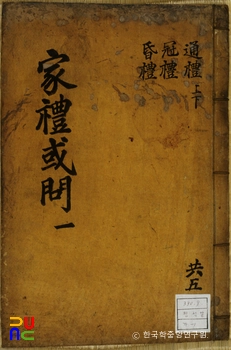 家禮或問 一
通禮 上下
冠禮
昏禮
共五
ⓒ 한국학중앙연구원